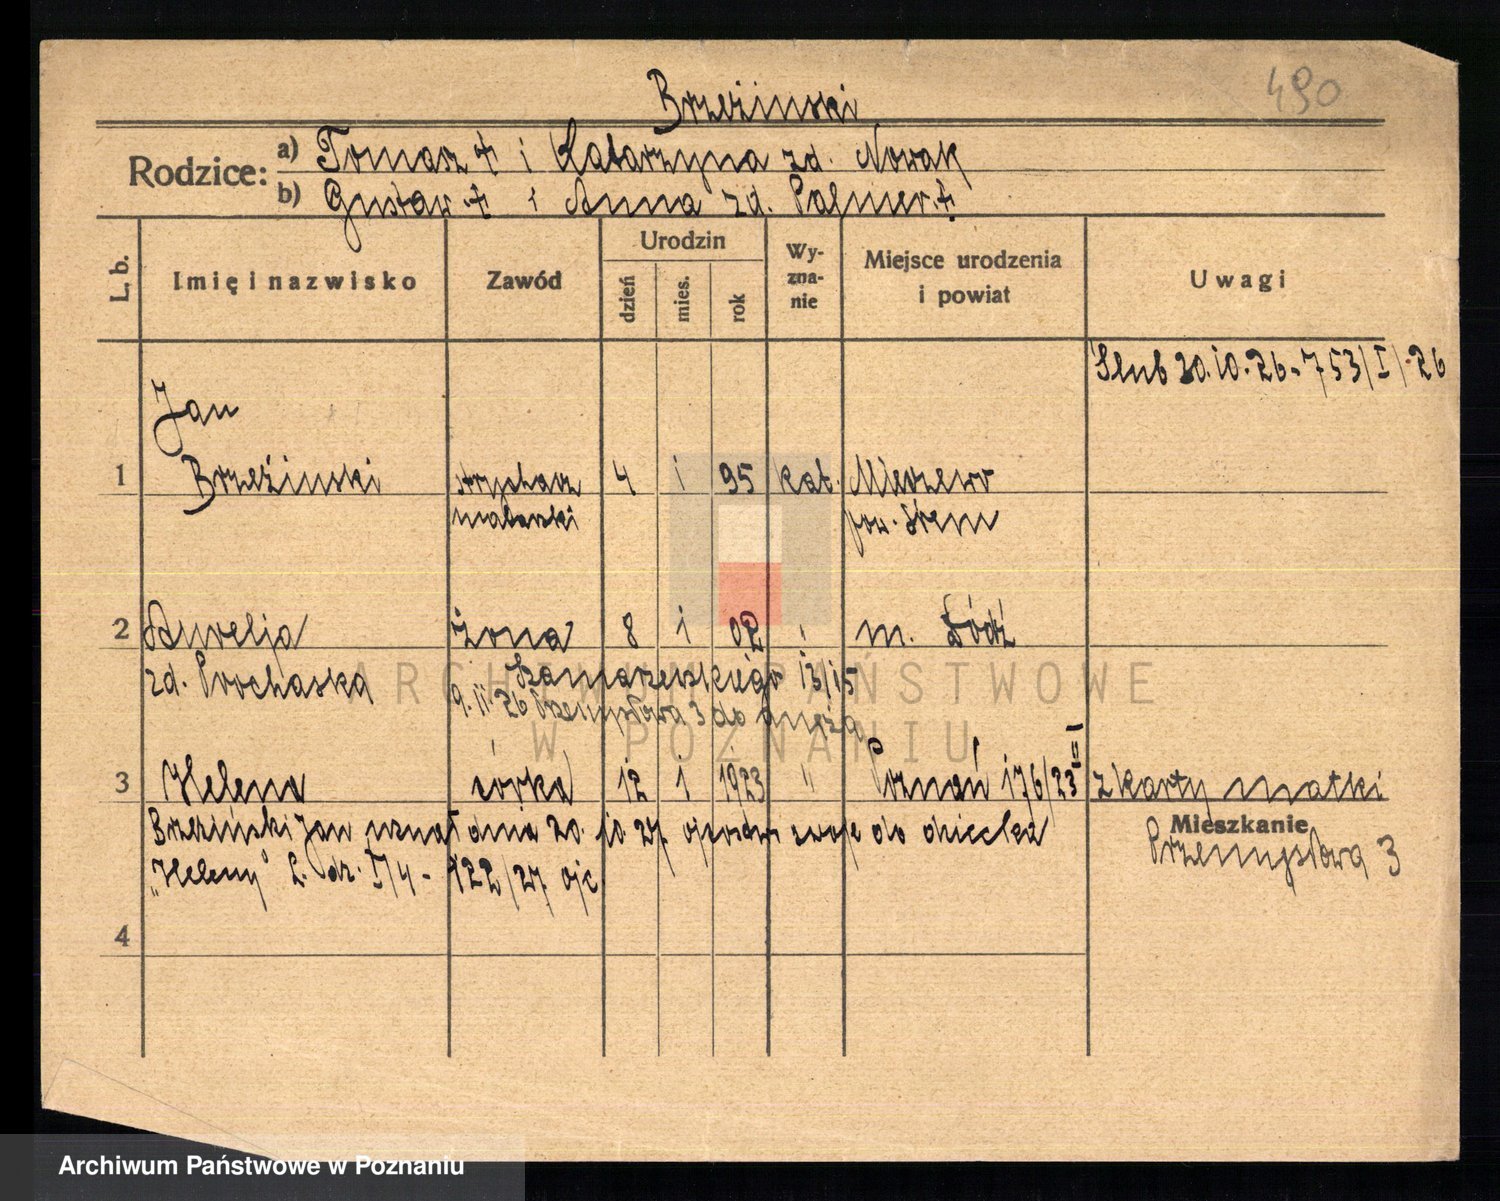 490
Brzeźinski
Rodzice: a) Tomasz + i Katarzyna zd. Nowak
b) Gustaw + i Anna zd. Palmer +
L. b. Imię i nazwisko Zawód Urodzin dzień mies. rok Wyznanie Miejsce urodzenia i powiat Uwagi
Ślub 20.10.26. 753/I/26
Jan
1 Brzeźinski strycharz 4 i 95 kat. Mieczewo
malarski pow. Śrem
2 Aurelja żona 8 i 02 " m. Łódź
zd. Prochaska Szamarzewskiego 13/15
9. 11. 26 Przemysłowa 3 do męża
3 Helena córka 12 1 1923 " Poznań 176/23 II z karty matki
Brzeziński Jan uznał dnia 20. 10. 27. ojcostwo swoje do dziecka
Mieszkanie
Przemysłowa 3
"Heleny" L. dz. I/4 - 122/27. ojc.
4
ARCHIWUM PAŃSTWOWE
W POZNANIU
Archiwum Państwowe w Poznaniu